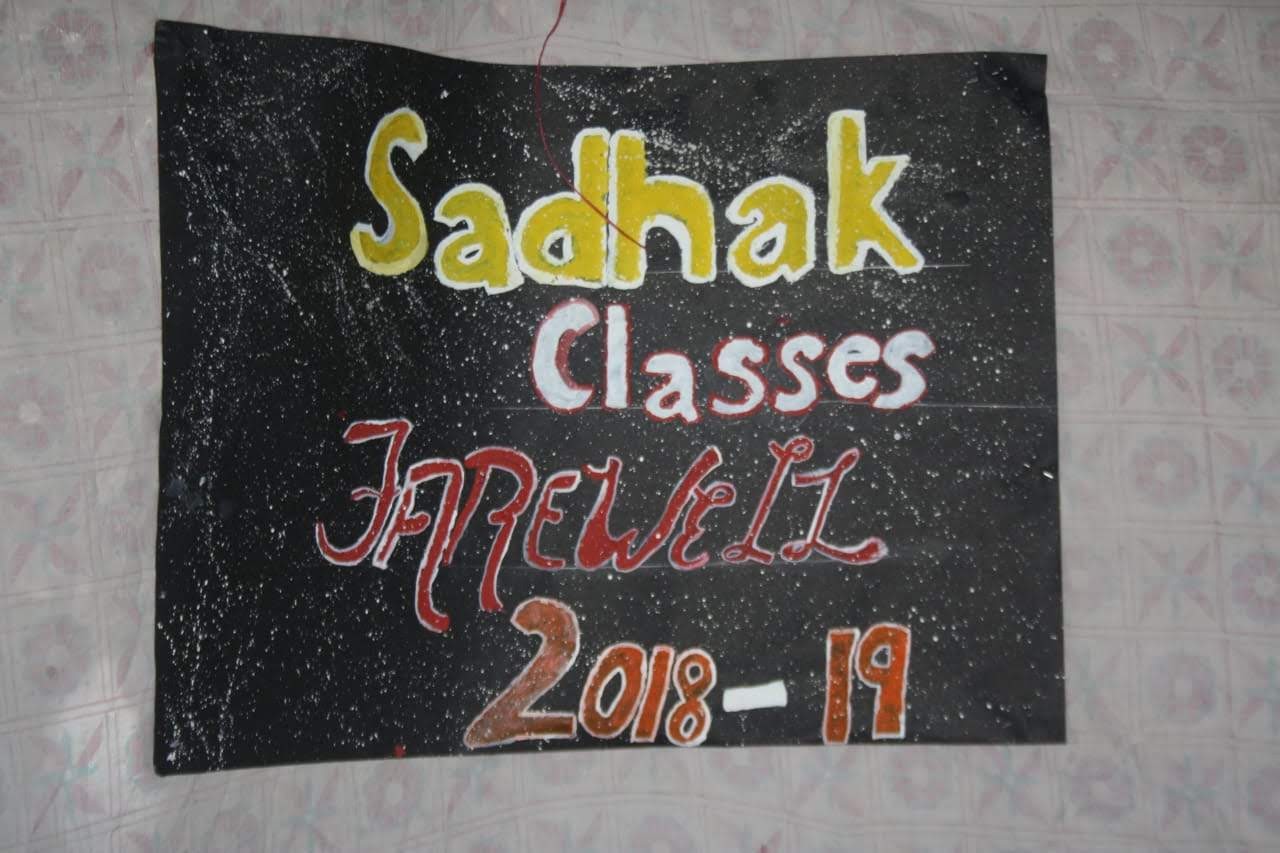 Sadhak
Classes
FAREWELL
2018-19